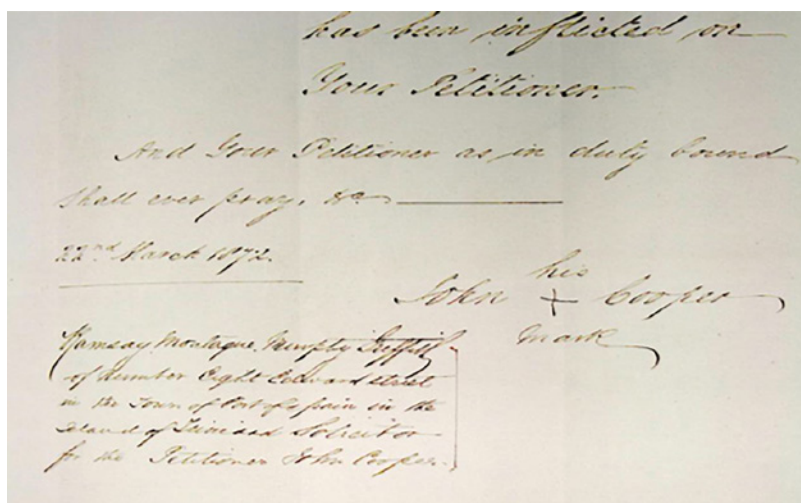 has been inflicted on
Your Petitioner.
And Your Petitioner as in duty bound
Shall ever pray, &c.
22nd March 1872.
his
John + Cooper
mark
Ramsay Montague Murphy
of Number Eight Edward street
in the Town of Port of Spain in the
Island of Trinidad Solicitor
for the Petitioner John Cooper.